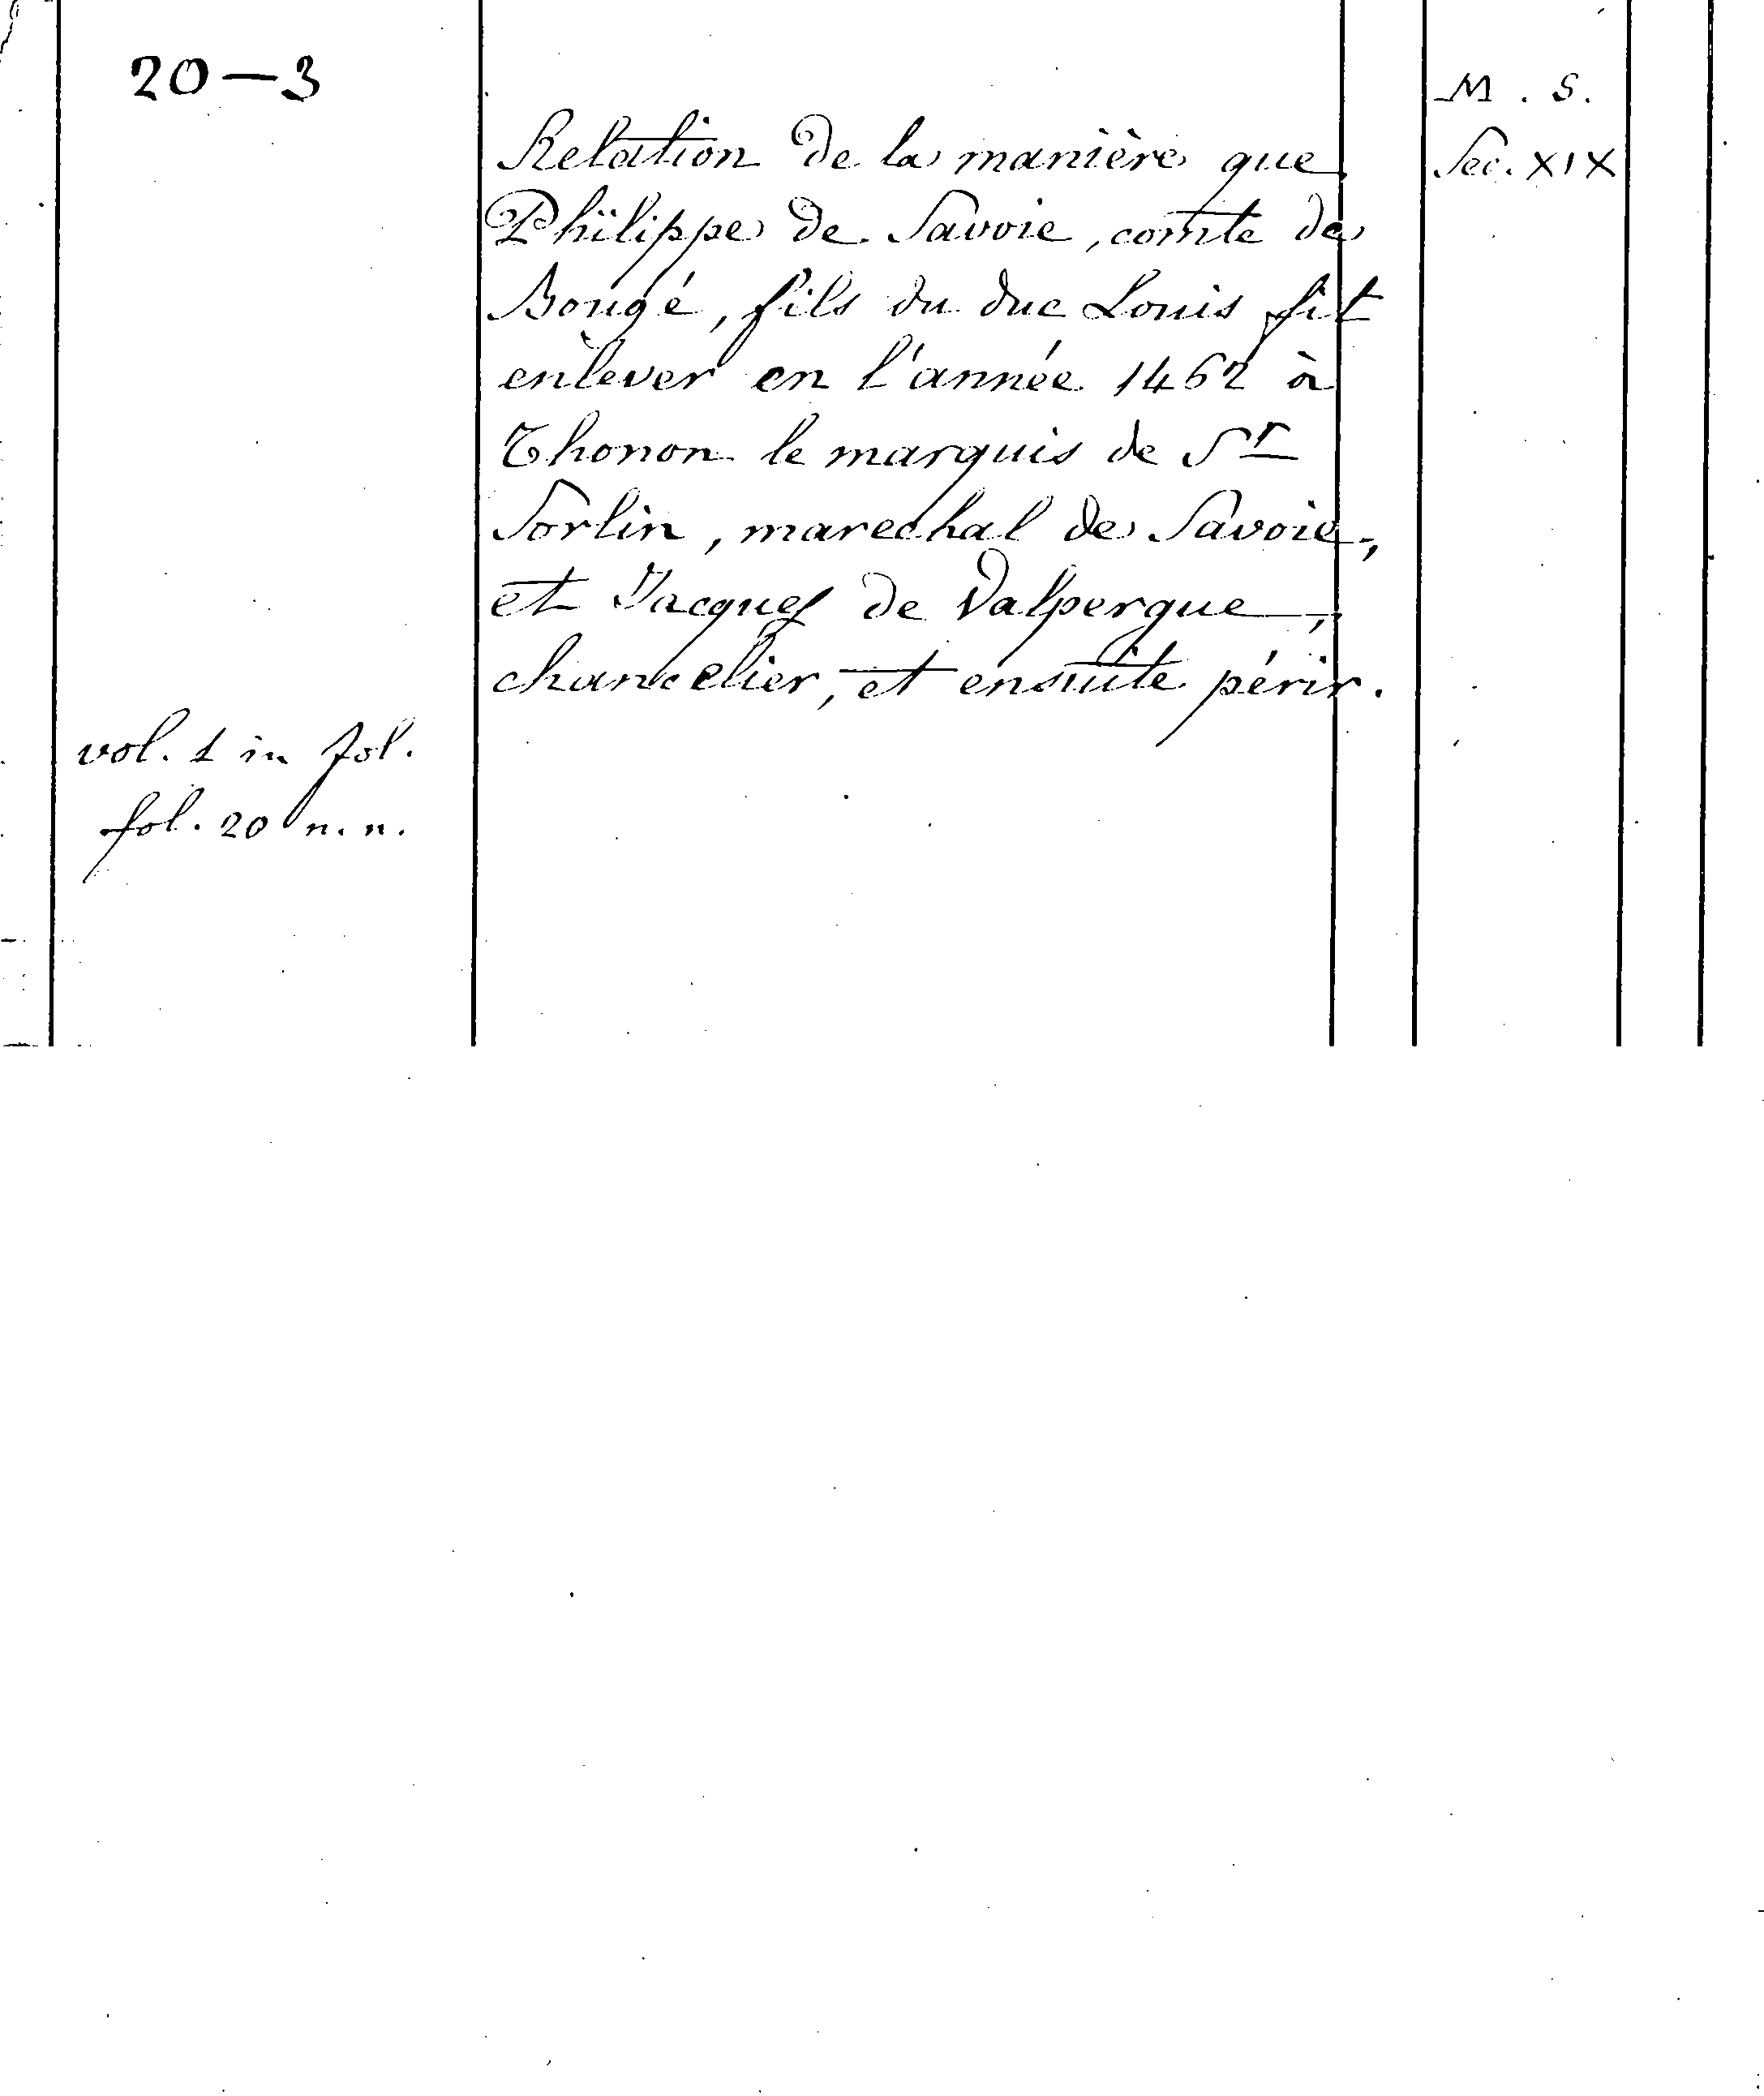 20—3
Relation de la manière que
Philippe de Savoie, comte de
Bougé, fils du duc Louis fit
enlever en l'année 1462 à
Thonon le marquis de Sr
Sorlin, marechal de Savoie,
et Jacques de Valpergue,
chancelier, et ensuite périr.
vol. 1 in fol.
fol. 20 n. n.
M. S.
Sec. XIX